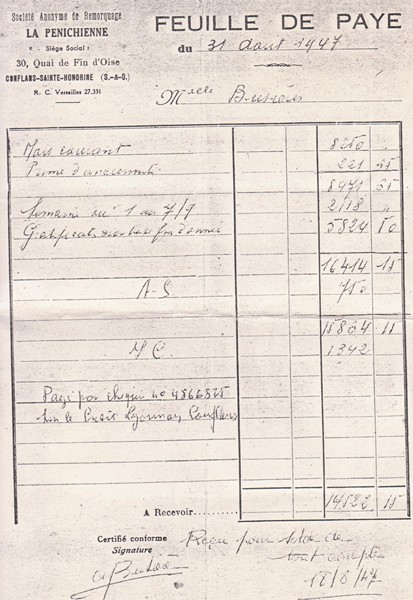 Société Anonyme de Remorquage
LA PENICHIENNE
Siège Social
30, Quai de Fin d'Oise
CONFLANS-SAINTE-HONORINE (S.-&-O.)
R. C. Versailles 27.331
FEUILLE DE PAYE
du 31 Aout 1947
M elle
Mois courant 8250 "
Prime d'ancienneté 221 65
8471 65
Semaine du 1 au 7/7 2118 "
5824 50
16414 15
A.S. 750
15864 15
1342
Payé par chèque no 4866825
Sur le Crédit Lyonnais Conflans
A Recevoir 14522 15
Certifié conforme
Signature
Reçu pour solde de
tout compte
18/8/47